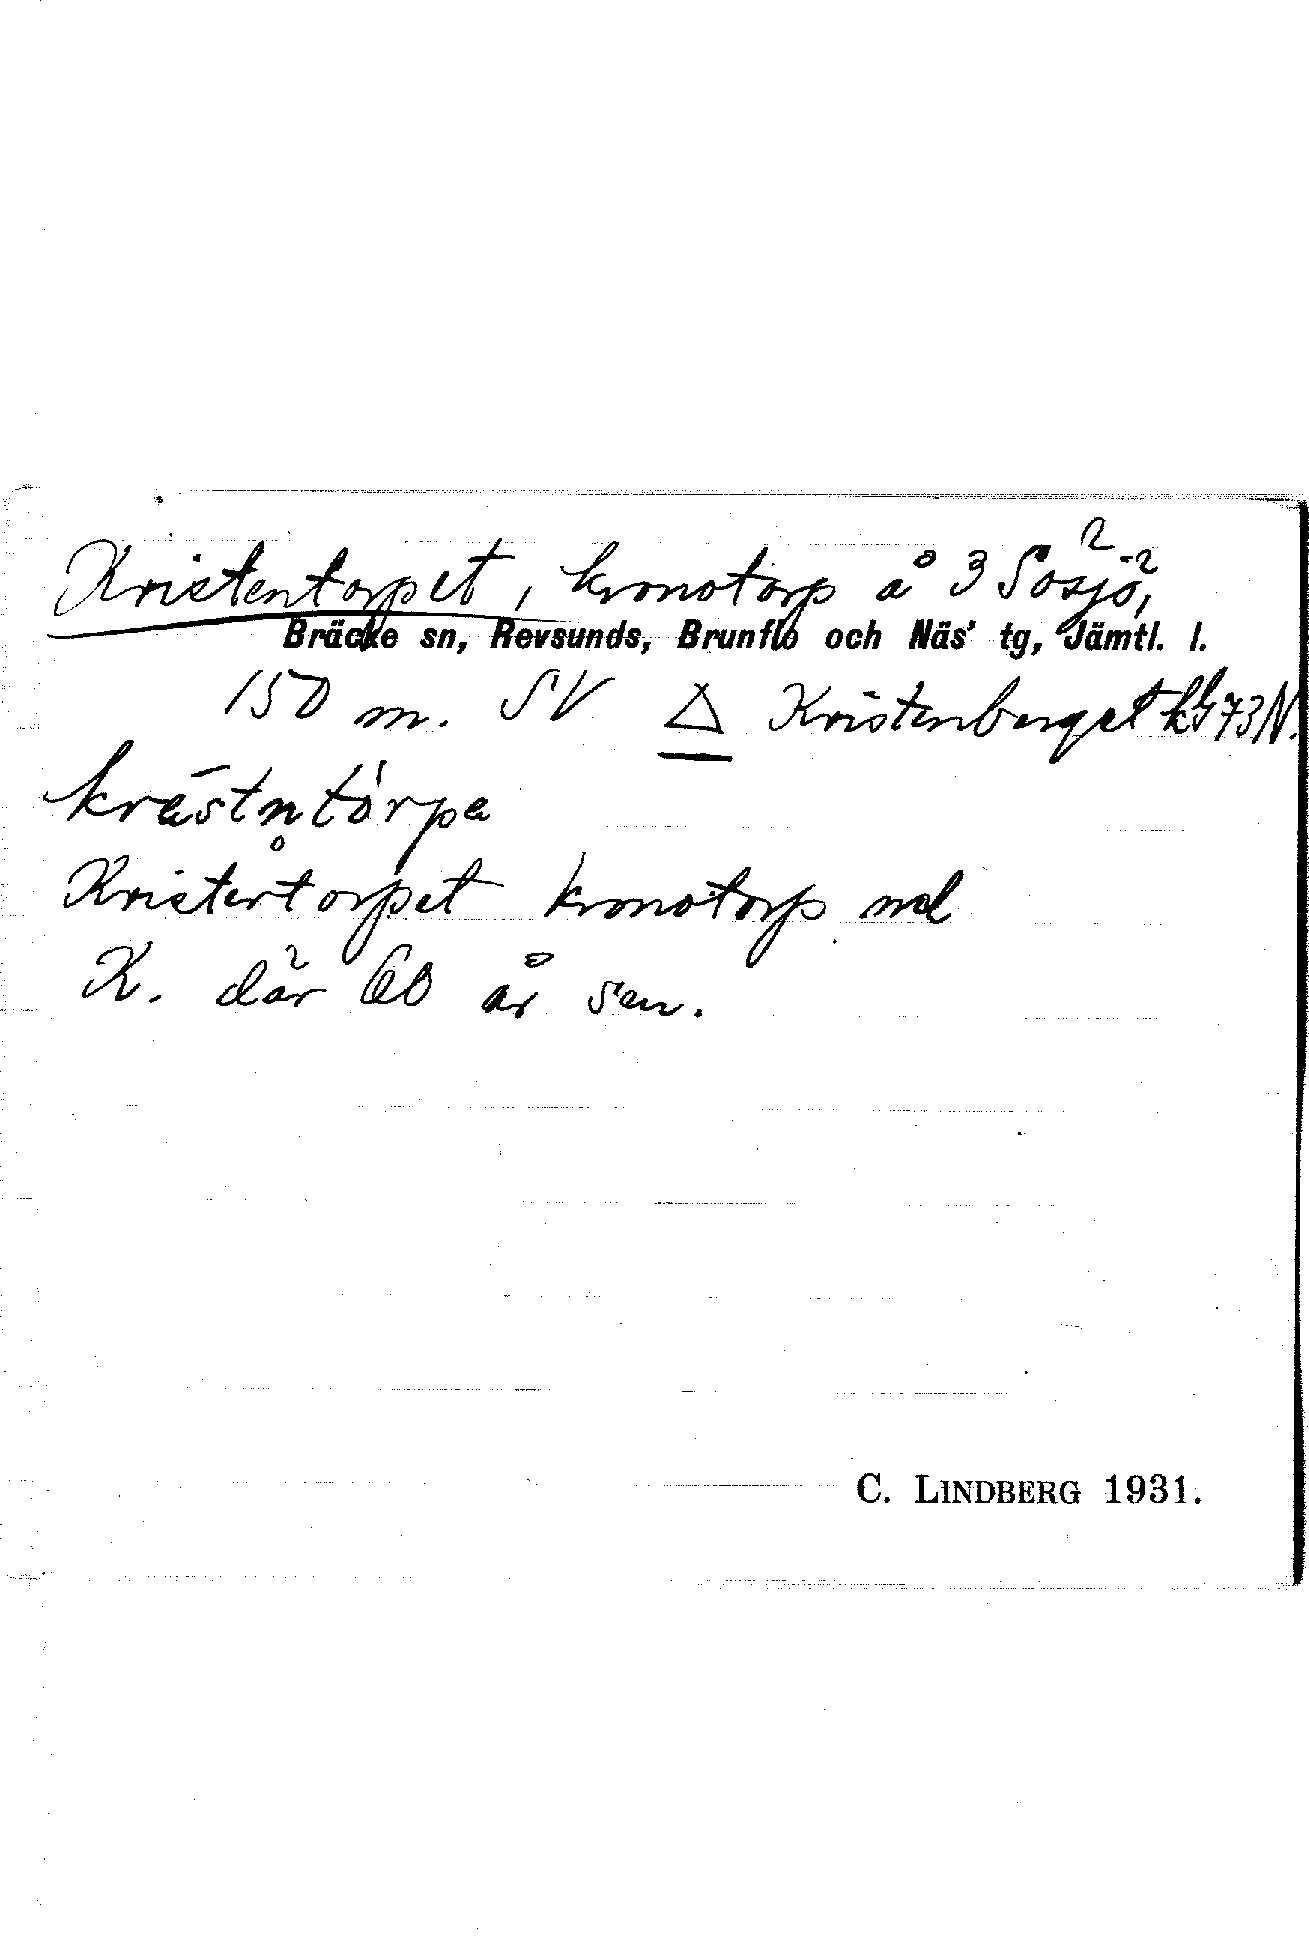 Kristentorpet, kronotorp å 3 Sösjö,
Bräcke sn, Revsunds, Brunflo och Näs' tg, Jämtl. l.
150 m. SV △ Kristenberget 73 N.
krästn̥tórpa
Kristertorpet kronotorp
K. där 60 år sen.
C. LINDBERG 1931.